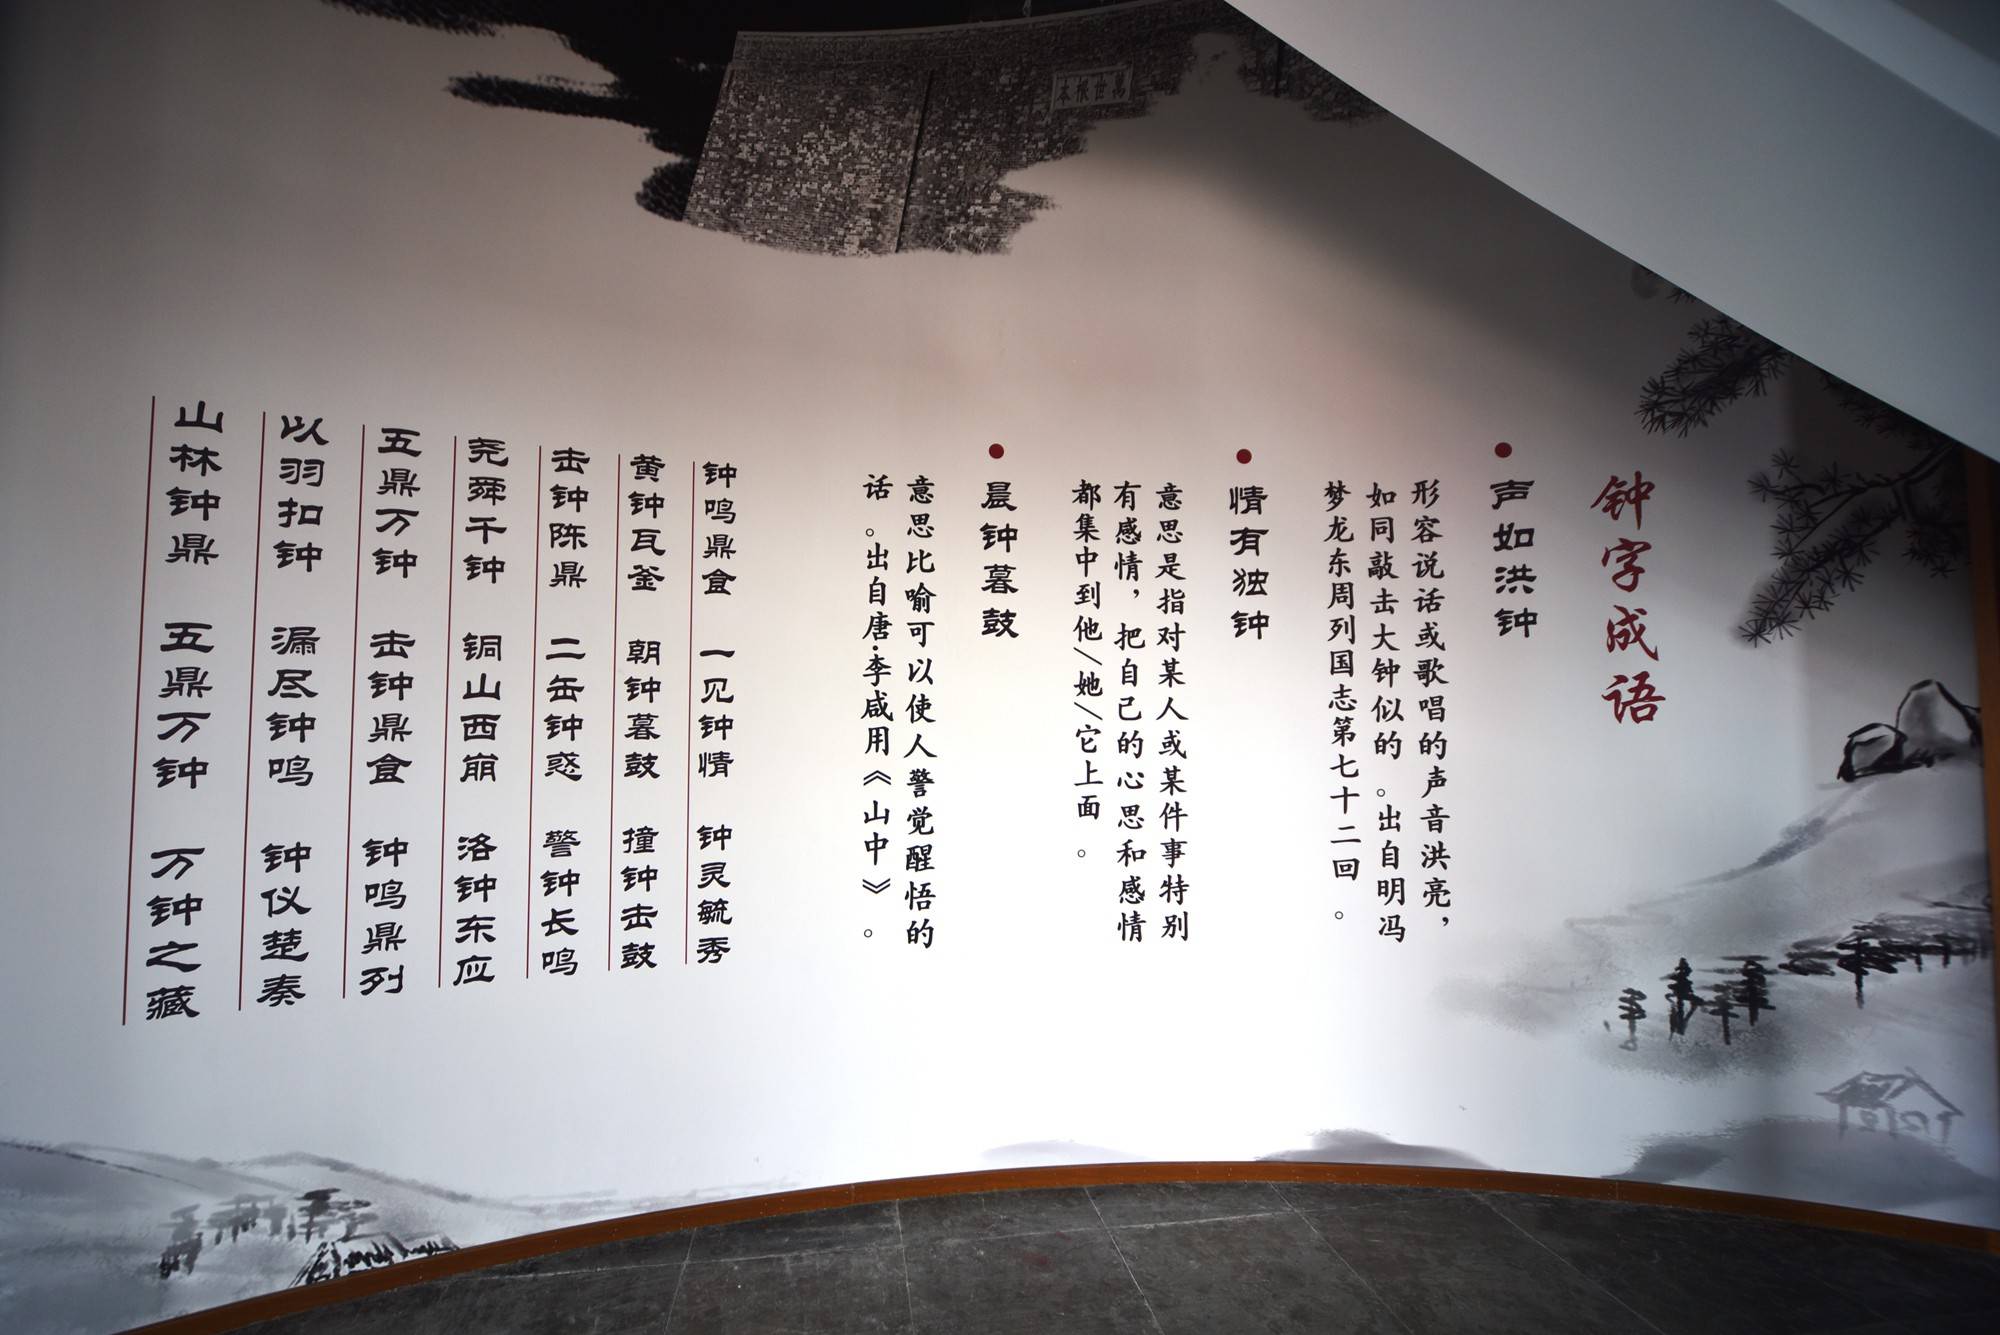 萬世根本
钟字成语
声如洪钟
形容说话或歌唱的声音洪亮，
如同敲击大钟似的。出自明冯
梦龙东周列国志第七十二回。
情有独钟
意思是指对某人或某件事特别
有感情，把自己的心思和感情
都集中到他/她/它上面。
晨钟暮鼓
意思比喻可以使人警觉醒悟的
话。出自唐·李咸用《山中》。
钟鸣鼎食 一见钟情 钟灵毓秀
黄钟瓦釜 朝钟暮鼓 撞钟击鼓
击钟陈鼎 二缶钟惑 警钟长鸣
尧舜千钟 铜山西崩 洛钟东应
五鼎万钟 击钟鼎食 钟鸣鼎列
以羽扣钟 漏尽钟鸣 钟仪楚奏
山林钟鼎 五鼎万钟 万钟之藏